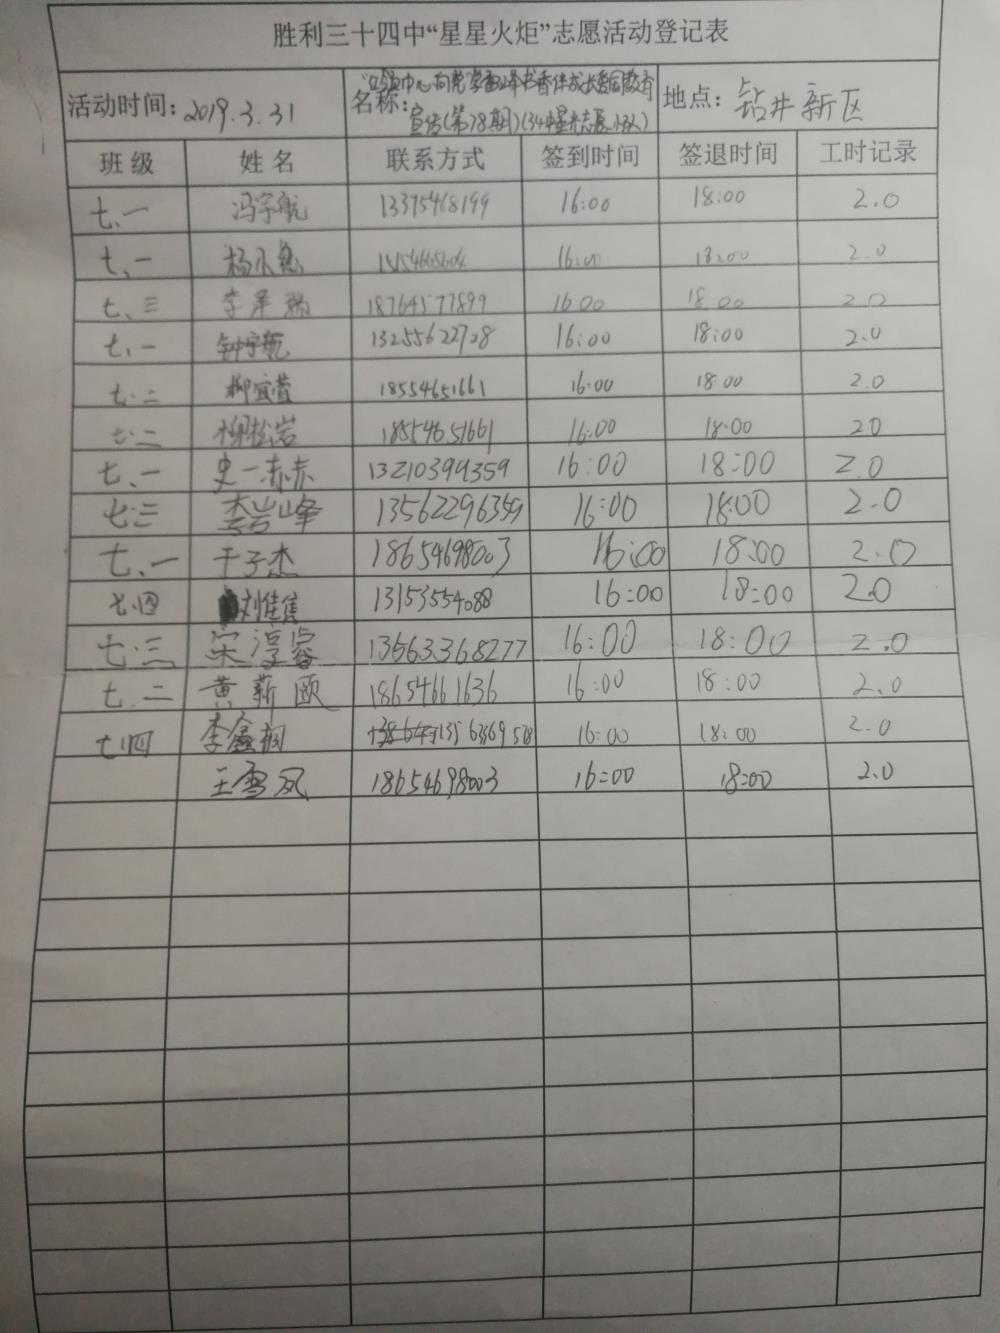 胜利三十四中“星星火炬”志愿活动登记表
活动时间：2019.3.31 名称： 地点：钻井新区
宣传(第78期)(34中星火志愿小队)
班级 姓名 联系方式 签到时间 签退时间 工时记录
七、一 冯宇航 13375468199 16:00 18:00 2.0
七、一 16:00 18:00 2.0
七、三 李泽瑞 18764577899 16 00 18 00 2.0
七、一 钟宇航 13255622728 16:00 18:00 2.0
七.二 柳宜萱 18554651661 16:00 18:00 2.0
七.二 柳松岩 18554651661 16:00 18:00 2.0
七、一 史一赤赤 13210399359 16:00 18:00 2.0
七.三 李岩峰 13562296359 16:00 18:00 2.0
七、一 于子杰 18654698003 16:00 18:00 2.0
七.四 刘佳焦 13153554088 16:00 18:00 2.0
七.三 宋淳容 13563368277 16:00 18:00 2.0
七.二 黄薪颐 18654661636 16:00 18:00 2.0
七.四 李鑫桐 16:00 18:00 2.0
王雪凤 18654698003 16:00 18:00 2.0